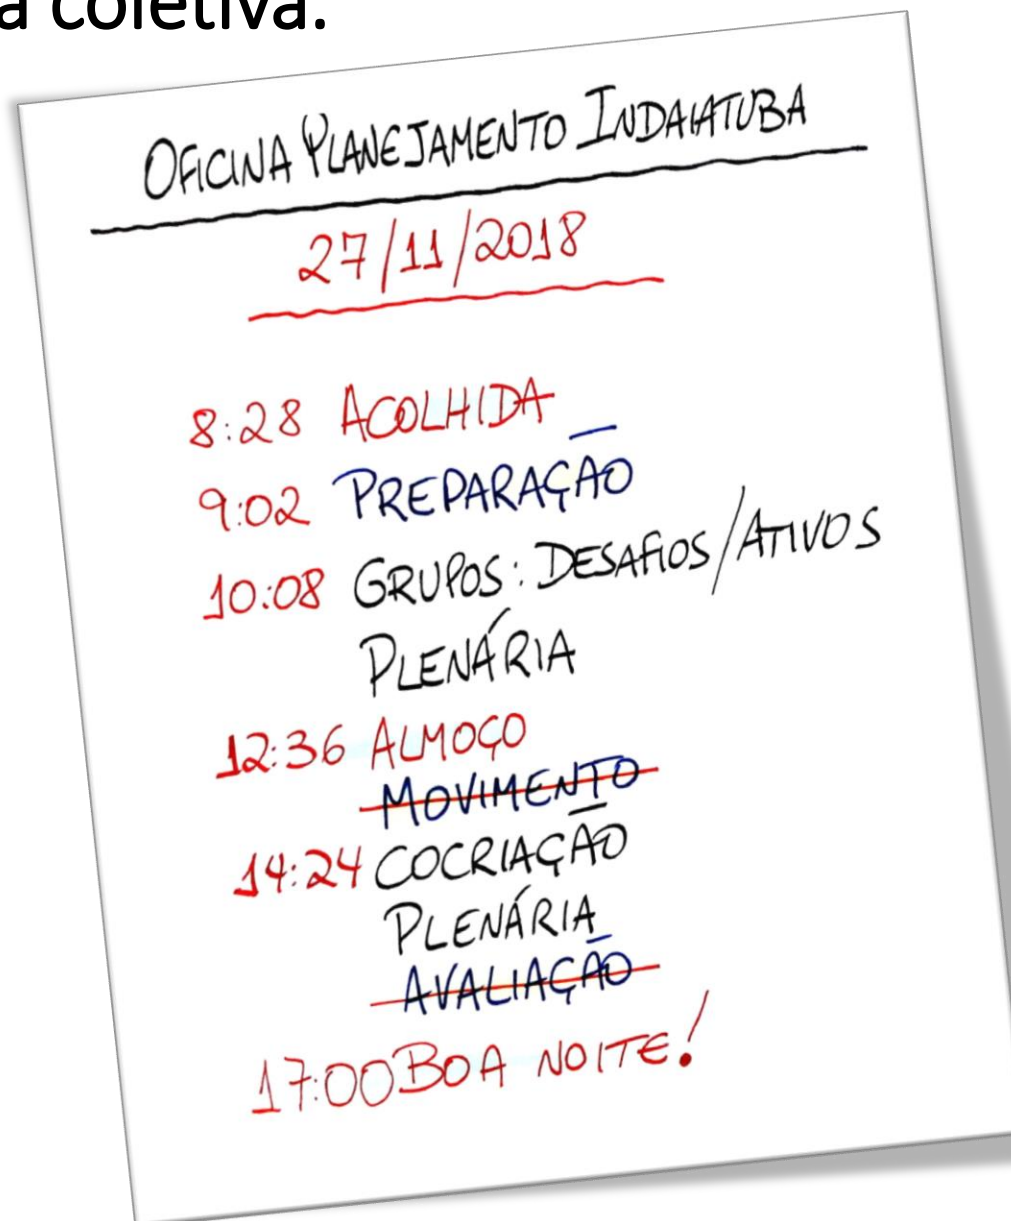 a coletiva.
OFICINA PLANEJAMENTO INDAIATUBA
27/11/2018
8:28 ACOLHIDA
9:02 PREPARAÇÃO
10:08 GRUPOS: DESAFIOS/ATIVOS
PLENÁRIA
12:36 ALMOÇO
MOVIMENTO
14:24 COCRIAÇÃO
PLENÁRIA
AVALIAÇÃO
17:00 BOA NOITE!